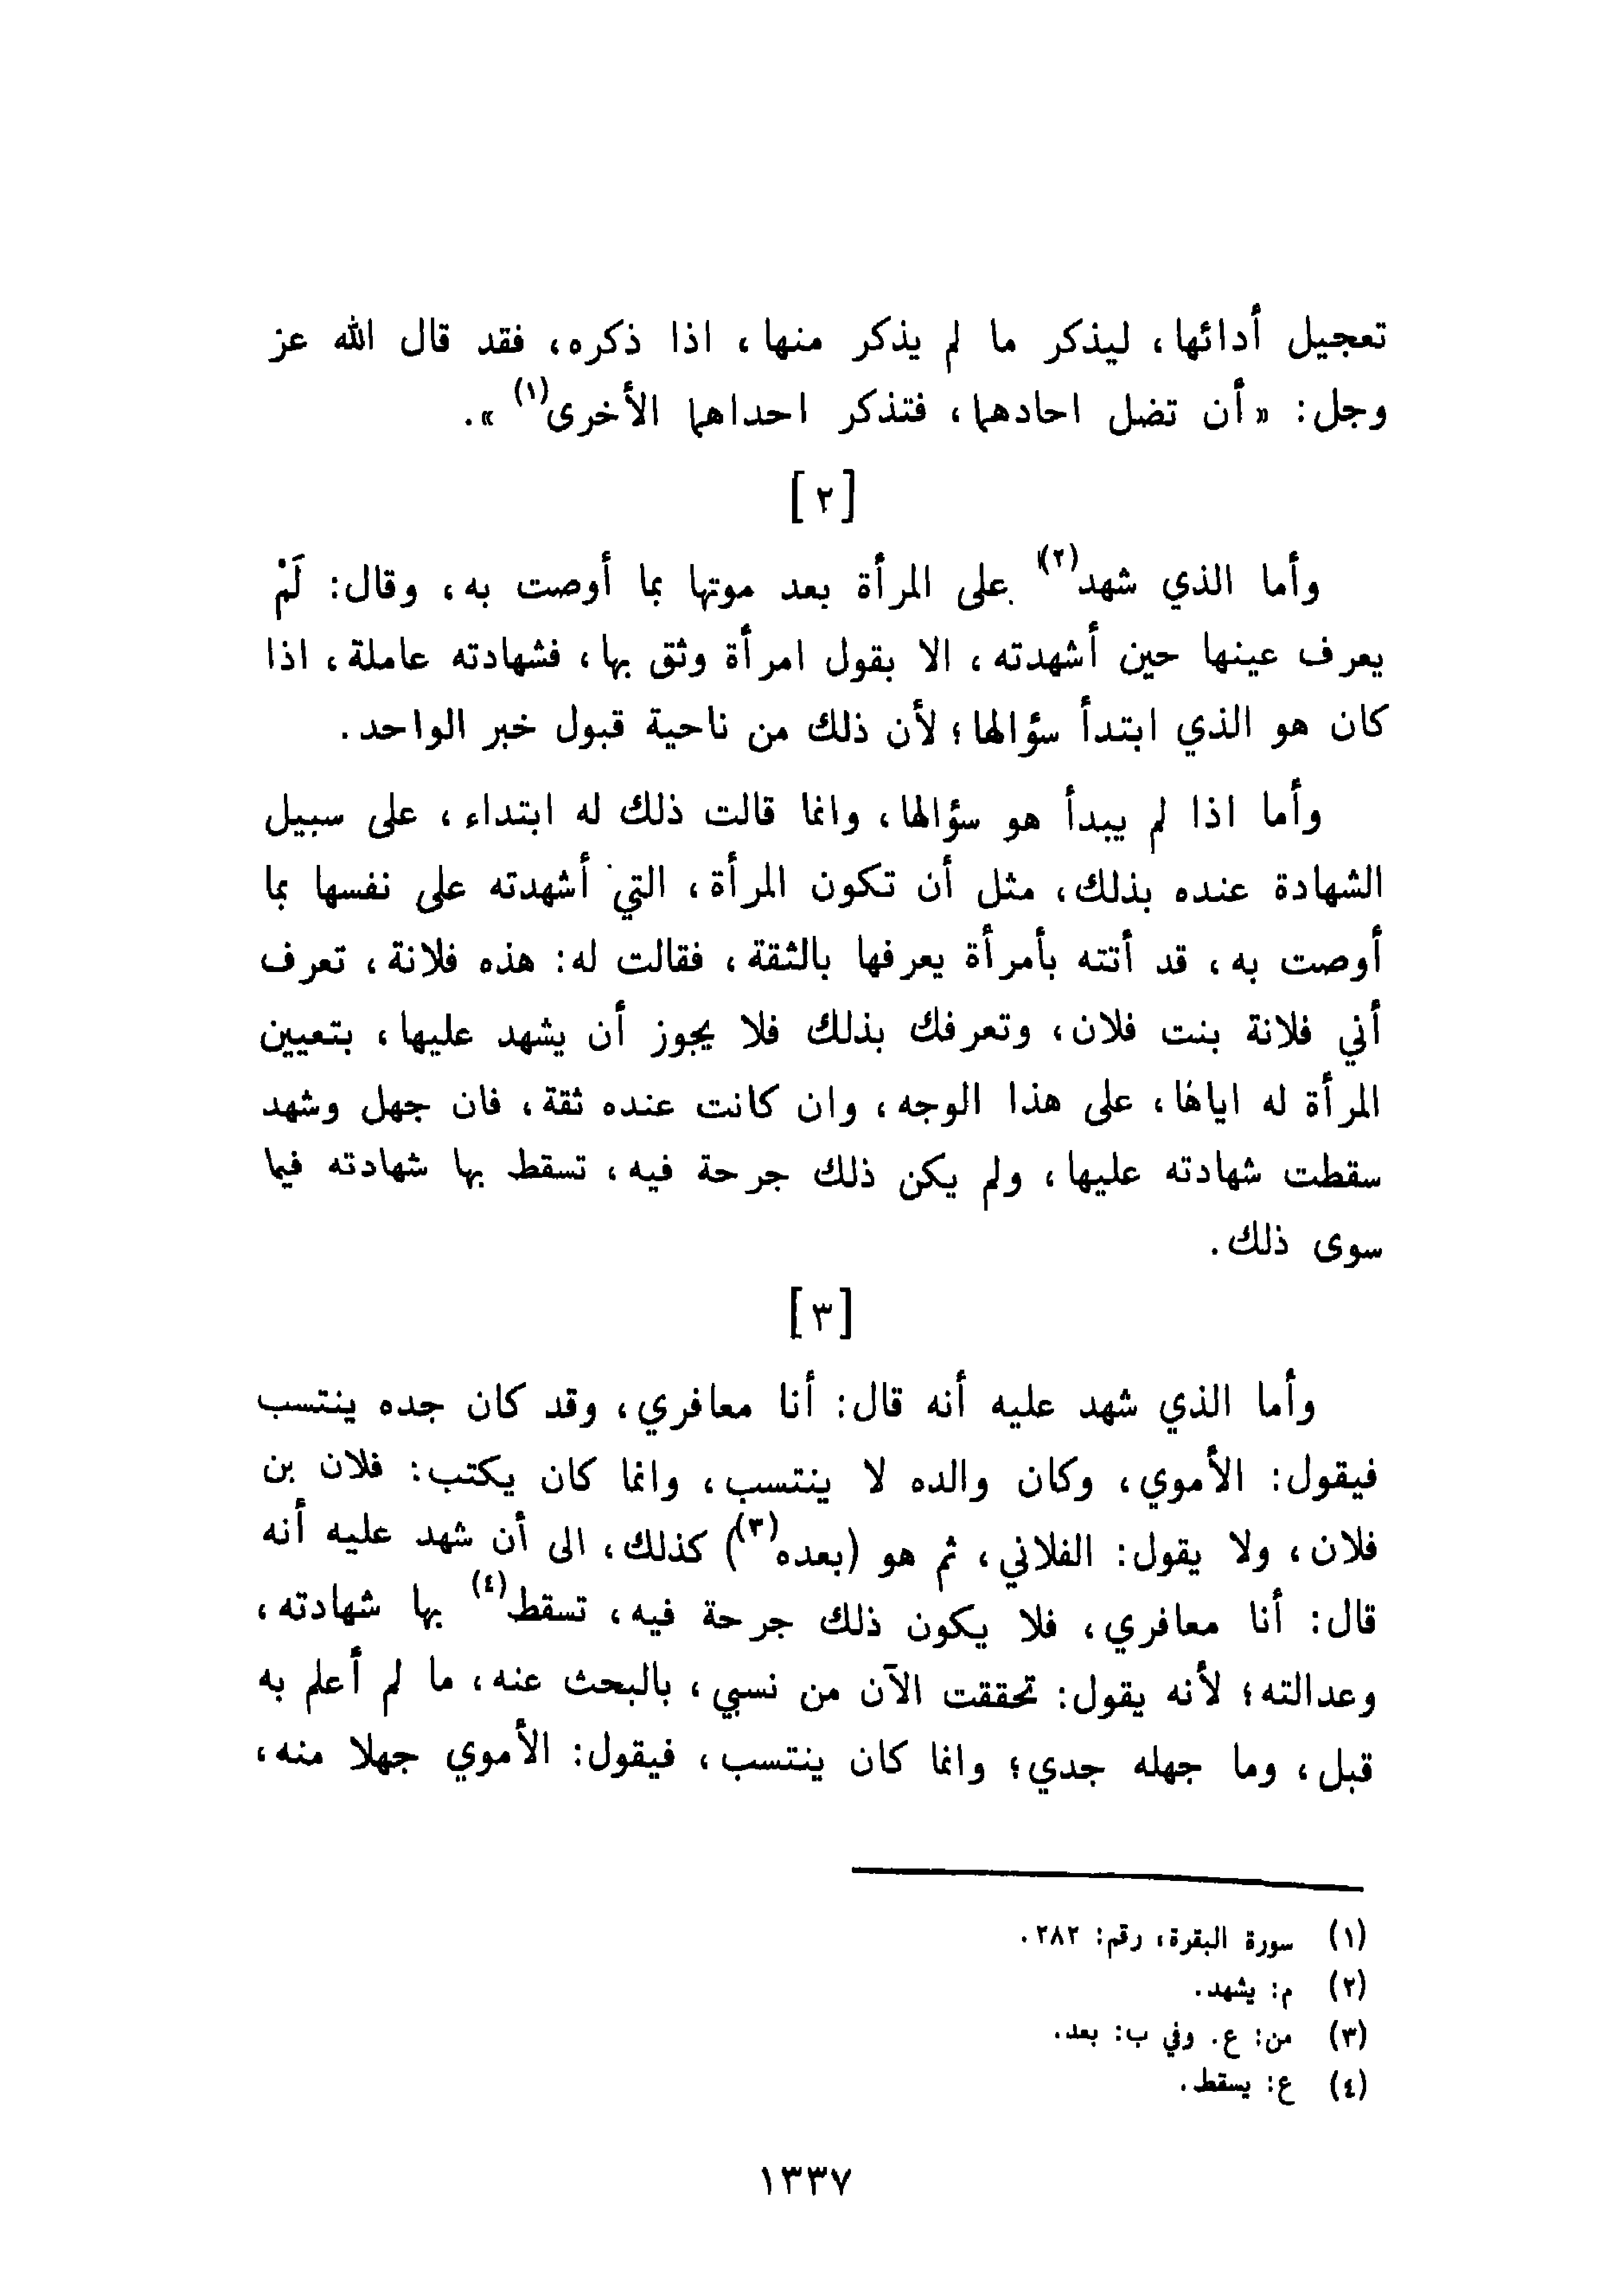 تعجيل أدائها، ليذكر ما لم يذكر منها، اذا ذكره، فقد قال الله عز
وجل: «أن تضل احادهما، فتذكر احداهما الأخرى(١)».
[٢]
وأما الذي شهد(٢) على المرأة بعد موتها بما أوصت به، وقال: لَمْ
يعرف عينها حين أشهدته، الا بقول امرأة وثق بها، فشهادته عاملة، اذا
كان هو الذي ابتدأ سؤالها؛ لأن ذلك من ناحية قبول خبر الواحد.
وأما اذا لم يبدأ هو سؤالها، وانما قالت ذلك له ابتداء، على سبيل
الشهادة عنده بذلك، مثل أن تكون المرأة، التي أشهدته على نفسها بما
أوصت به، قد أتته بأمرأة يعرفها بالثقة، فقالت له: هذه فلانة، تعرف
أني فلانة بنت فلان، وتعرفك بذلك فلا يجوز أن يشهد عليها، بتعيين
المرأة له اياها، على هذا الوجه، وان كانت عنده ثقة، فان جهل وشهد
سقطت شهادته عليها، ولم يكن ذلك جرحة فيه، تسقط بها شهادته فيما
سوى ذلك.
[٣]
وأما الذي شهد عليه أنه قال: أنا معافري، وقد كان جده ينتسب
فيقول: الأموي، وكان والده لا ينتسب، وانما كان يكتب: فلان بن
فلان، ولا يقول: الفلاني، ثم هو (بعده(٣)) كذلك، الى أن شهد عليه أنه
قال: أنا معافري، فلا يكون ذلك جرحة فيه، تسقط(٤) بها شهادته،
وعدالته؛ لأنه يقول: تحققت الآن من نسبي، بالبحث عنه، ما لم أعلم به
قبل، وما جهله جدي؛ وانما كان ينتسب، فيقول: الأموي جهلا منه،
(١) سورة البقرة، رقم: ٢٨٢.
(٢) م: يشهد.
(٣) من: ع. وفي ب: بعد.
(٤) ع: يسقط.
١٣٣٧